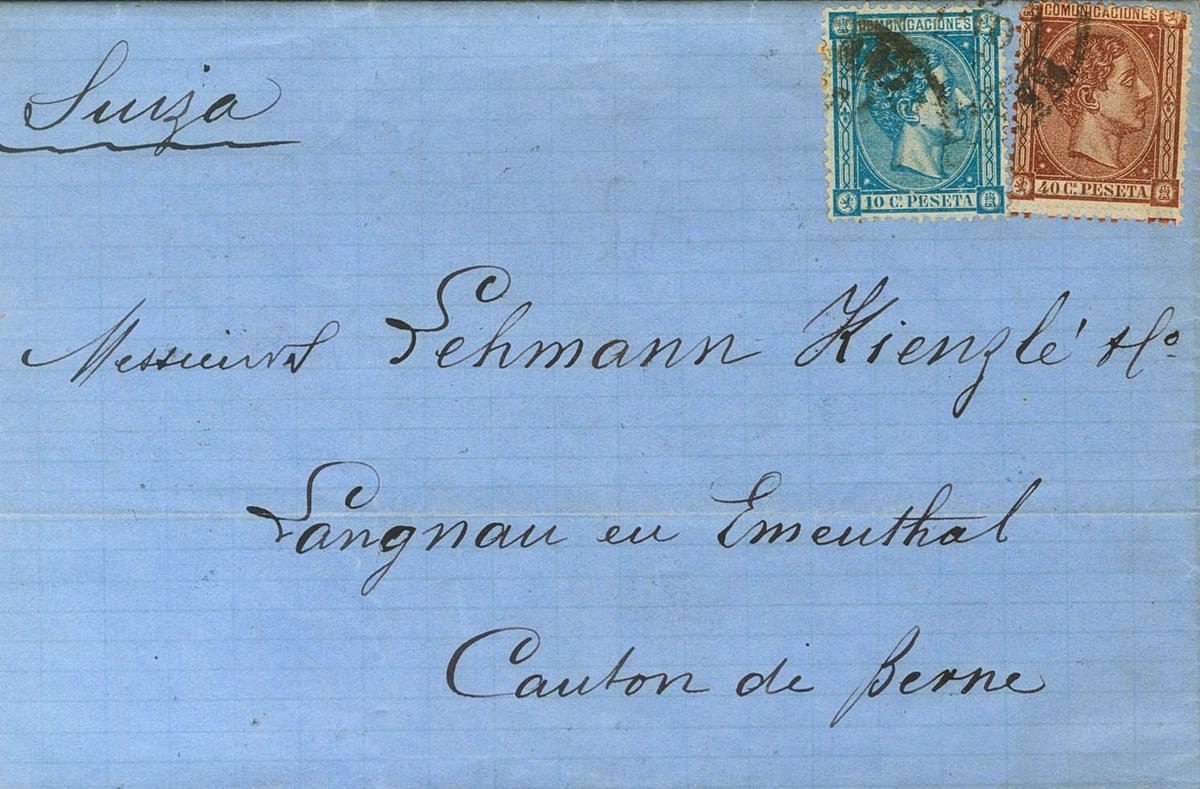 Suiza
COMUNICACIONES
10 Cs PESETA
COMUNICACIONES
40 Cs PESETA
Messieurs Lehmann Kienzlé & Co
Langnau en Ementhal
Canton de Berne